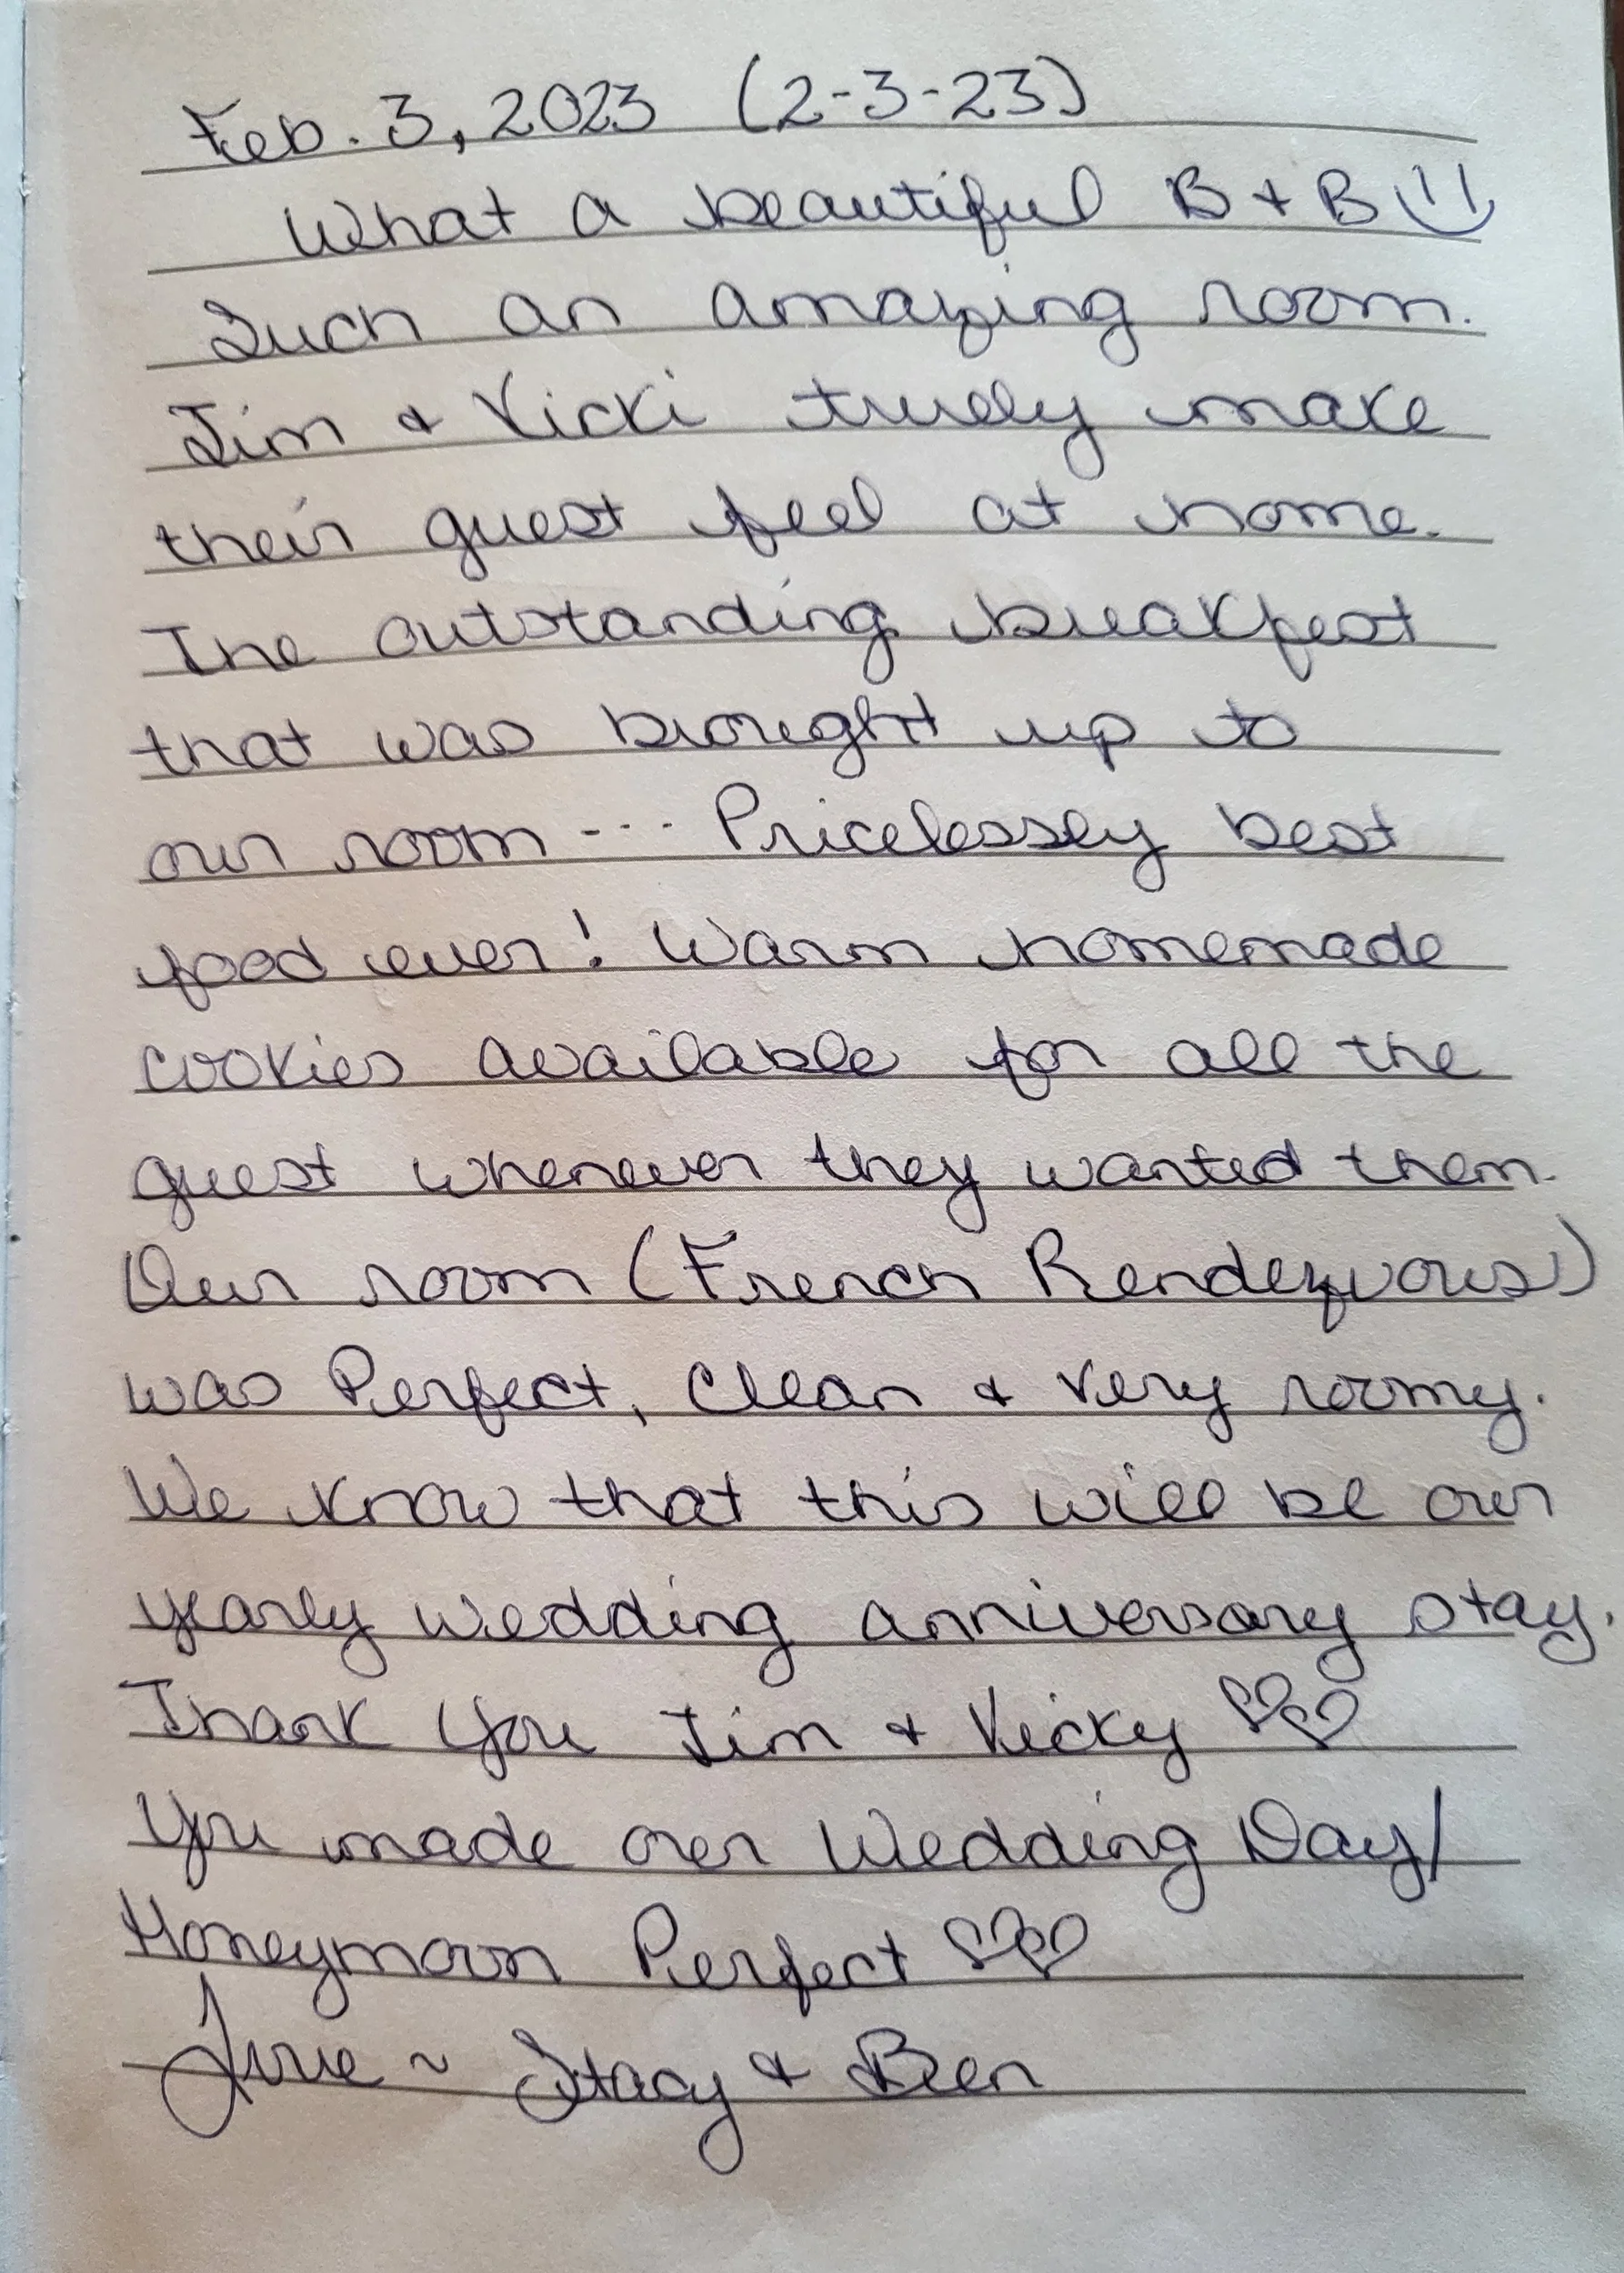 Feb. 3, 2023 (2-3-23)
What a beautiful B + B
Such an amazing room.
Jim & Vicki truely make
their guest feel at home.
The outstanding breakfest
that was brought up to
our room --- Pricelessly best
food ever! Warm homemade
cookies available for all the
guest whenever they wanted them.
Our room (French Rendezvous)
was Perfect, Clean & Very roomy.
We know that this will be our
yearly wedding anniversary stay.
Thank you Jim & Vicky ♡♡
You made our Wedding Day/
Honeymoon Perfect ♡♡
Love ~ Stacy & Ben